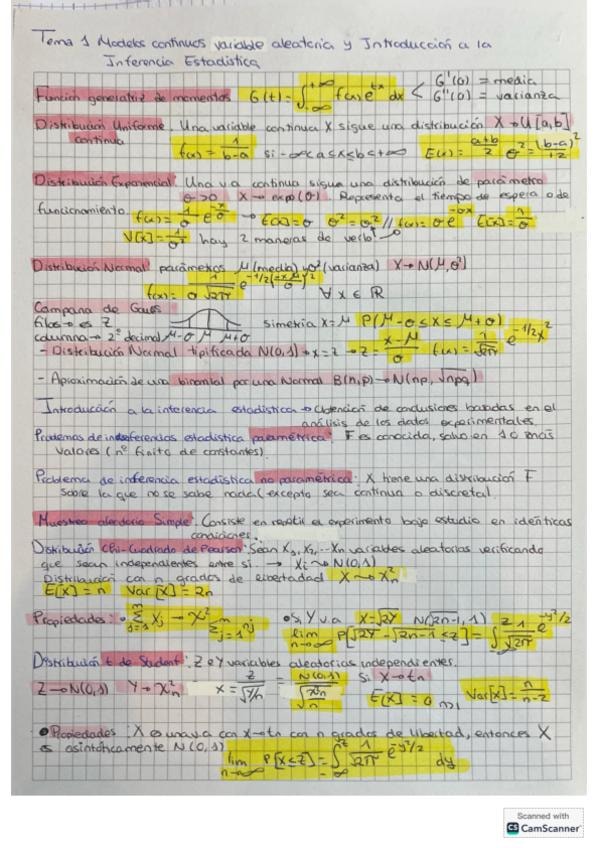 Tema 1 Modelos continuos variable aleatoria y Introducción a la
Inferencia Estadística
Función generatriz de momentos G(t) = ∫_{-∞}^{+∞} f(x) e^{tx} dx < G'(0) = media
G''(0) = varianza
Distribución Uniforme. Una variable continua X sigue una distribución X→U[a,b]
continua f(x) = 1/(b-a) si -∞<a≤x≤b<+∞ E(x) = (a+b)/2 σ² = (b-a)²/12
Distribución Exponencial. Una v a continua sigue una distribución de parámetro
θ>0 X→expo(θ) Representa el tiempo de espera o de
funcionamiento f(x) = 1/θ e^{-x/θ} → E(x) = θ σ² = θ² // f(x) = θ e^{-θx} E(x) = 1/θ
V[x] = 1/θ² hay 2 maneras de verlo
Distribución Normal parámetros μ (media) y σ² (varianza) X→N(μ,σ²)
f(x) = 1/(σ√2π) e^{-1/2((x-μ)/σ)²} ∀ x ∈ ℝ
Campana de Gaus
filas → es Z simetria x=μ P(μ-σ ≤ x ≤ μ+σ)
columna → 2º decimal μ-σ μ μ+σ
- Distribución Normal tipificada N(0,1) → x=z → z = (x-μ)/σ f(x) = 1/√2π e^{-1/2x²}
- Aproximación de una binomial por una Normal B(n,p) → N(np, √npq)
Introducción a la inferencia estadística → Obtención de conclusiones basadas en el
análisis de los datos experimentales.
Problemas de inferencias estadística paramétrica: F es conocida, salvo en 1 o más
valores (nº finito de constantes).
Problema de inferencia estadística no paramétrica: X tiene una distribución F
sobre la que no se sabe nada (excepto sea continua o discreta).
Muestreo aleatorio Simple. Consiste en repetir el experimento bajo estudio en idénticas
condiciones.
Distribución Chi-Cuadrado de Pearson: Sean X₁, X₂, ... Xn variables aleatorias verificando
que sean independientes entre si. → Xi → N(0,1)
Distribución con n grados de libertadad X → X²n
E[X] = n Var[X] = 2n
Propiedades: Si Y v.a X=√2Y N(√2n-1, 1)
lim n→∞ P[√2Y - √2n-1 ≤ z] = ∫ 1/√2π e^{-y²/2}
Distribución t de Student: Z e Y variables aleatorias independientes.
Z → N(0,1) Y → X²n X = Z/√(Y/n) = N(0,1)/√(X²n/n) Si X → tn E[X] = 0 n>1 Var[X] = n/(n-2)
Propiedades: X es una v.a con x→tn con n grados de libertad, entonces X
es asintóticamente N(0,1)
lim n→∞ P[X≤z] = ∫_{-∞}^{z} 1/√2π e^{-y²/2} dy
Scanned with
CS CamScanner